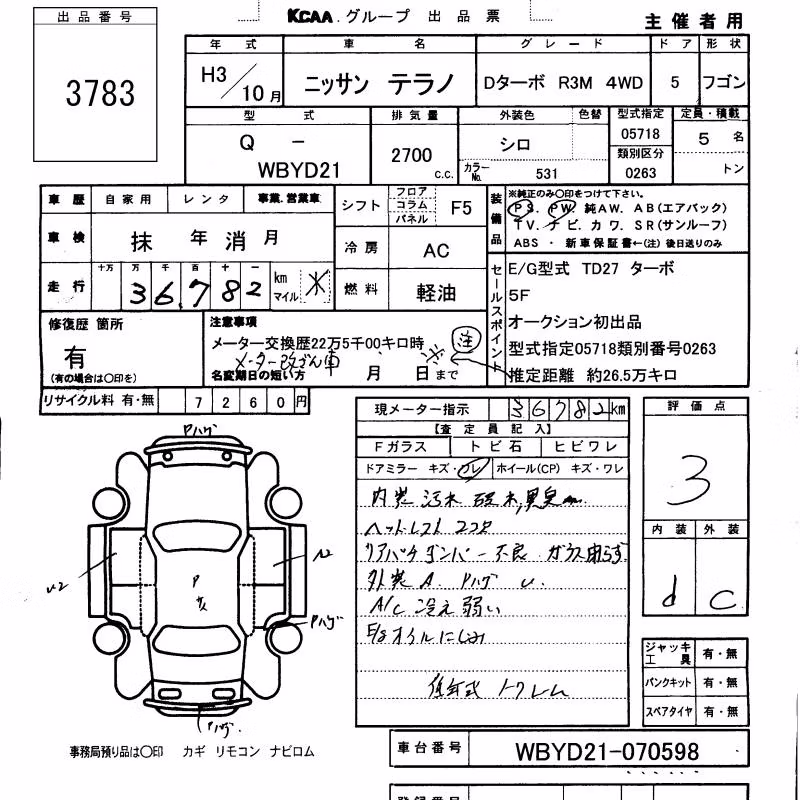 出品番号
3783
KCAA.グループ 出品票
主催者用
年式 車名 グレード ドア 形状
H3/10月 ニッサン テラノ Dターボ R3M 4WD 5 フゴン
型式 排気量 外装色 色替 型式指定 定員・積載
Q - WBYD21 2700 c.c. シロ 05718 5 名
カラーNo. 531 類別区分 0263 トン
車歴 自家用 レンタ 事業.営業車
車検 抹 年 消 月
走行 十万 万 千 百 十 一
36,782 km マイル ※
シフト フロア コラム パネル F5
冷房 AC
燃料 軽油
装備品
※純正のみ〇印をつけて下さい。
PS. PW. 純AW. AB(エアバック)
TV. ナビ. カワ. SR(サンルーフ)
ABS ・ 新車保証書←(注) 後日送りのみ
セールスポイント
E/G型式 TD27 ターボ
5F
オークション初出品
型式指定05718類別番号0263
推定距離 約26.5万キロ
修復歴 箇所
有
(有の場合は〇印を)
注意事項
メーター交換歴22万5千00キロ時
メーター改ざん車 ※ 注
名変期日の短い方 月 日まで
リサイクル料 有・無 7260円
現メーター指示 36782km
【査定員記入】
Fガラス トビ石 ヒビワレ
ドアミラー キズ・ワレ ホイール(CP) キズ・ワレ
内装 汚れ
ヘットレスト 2コ欠
リアハチ ダンパー 不良
外装 A. Pハゲ U.
A/C 冷え弱い
E/gオイルにじみ
低年式
評価点
3
内装 外装
d C
ジャッキ工具 有・無
パンクキット 有・無
スペアタイヤ 有・無
Pハゲ
U2
P
Pハゲ
Pハゲ
事務局預り品は〇印 カギ リモコン ナビロム
車台番号 WBYD21-070598
登録番号